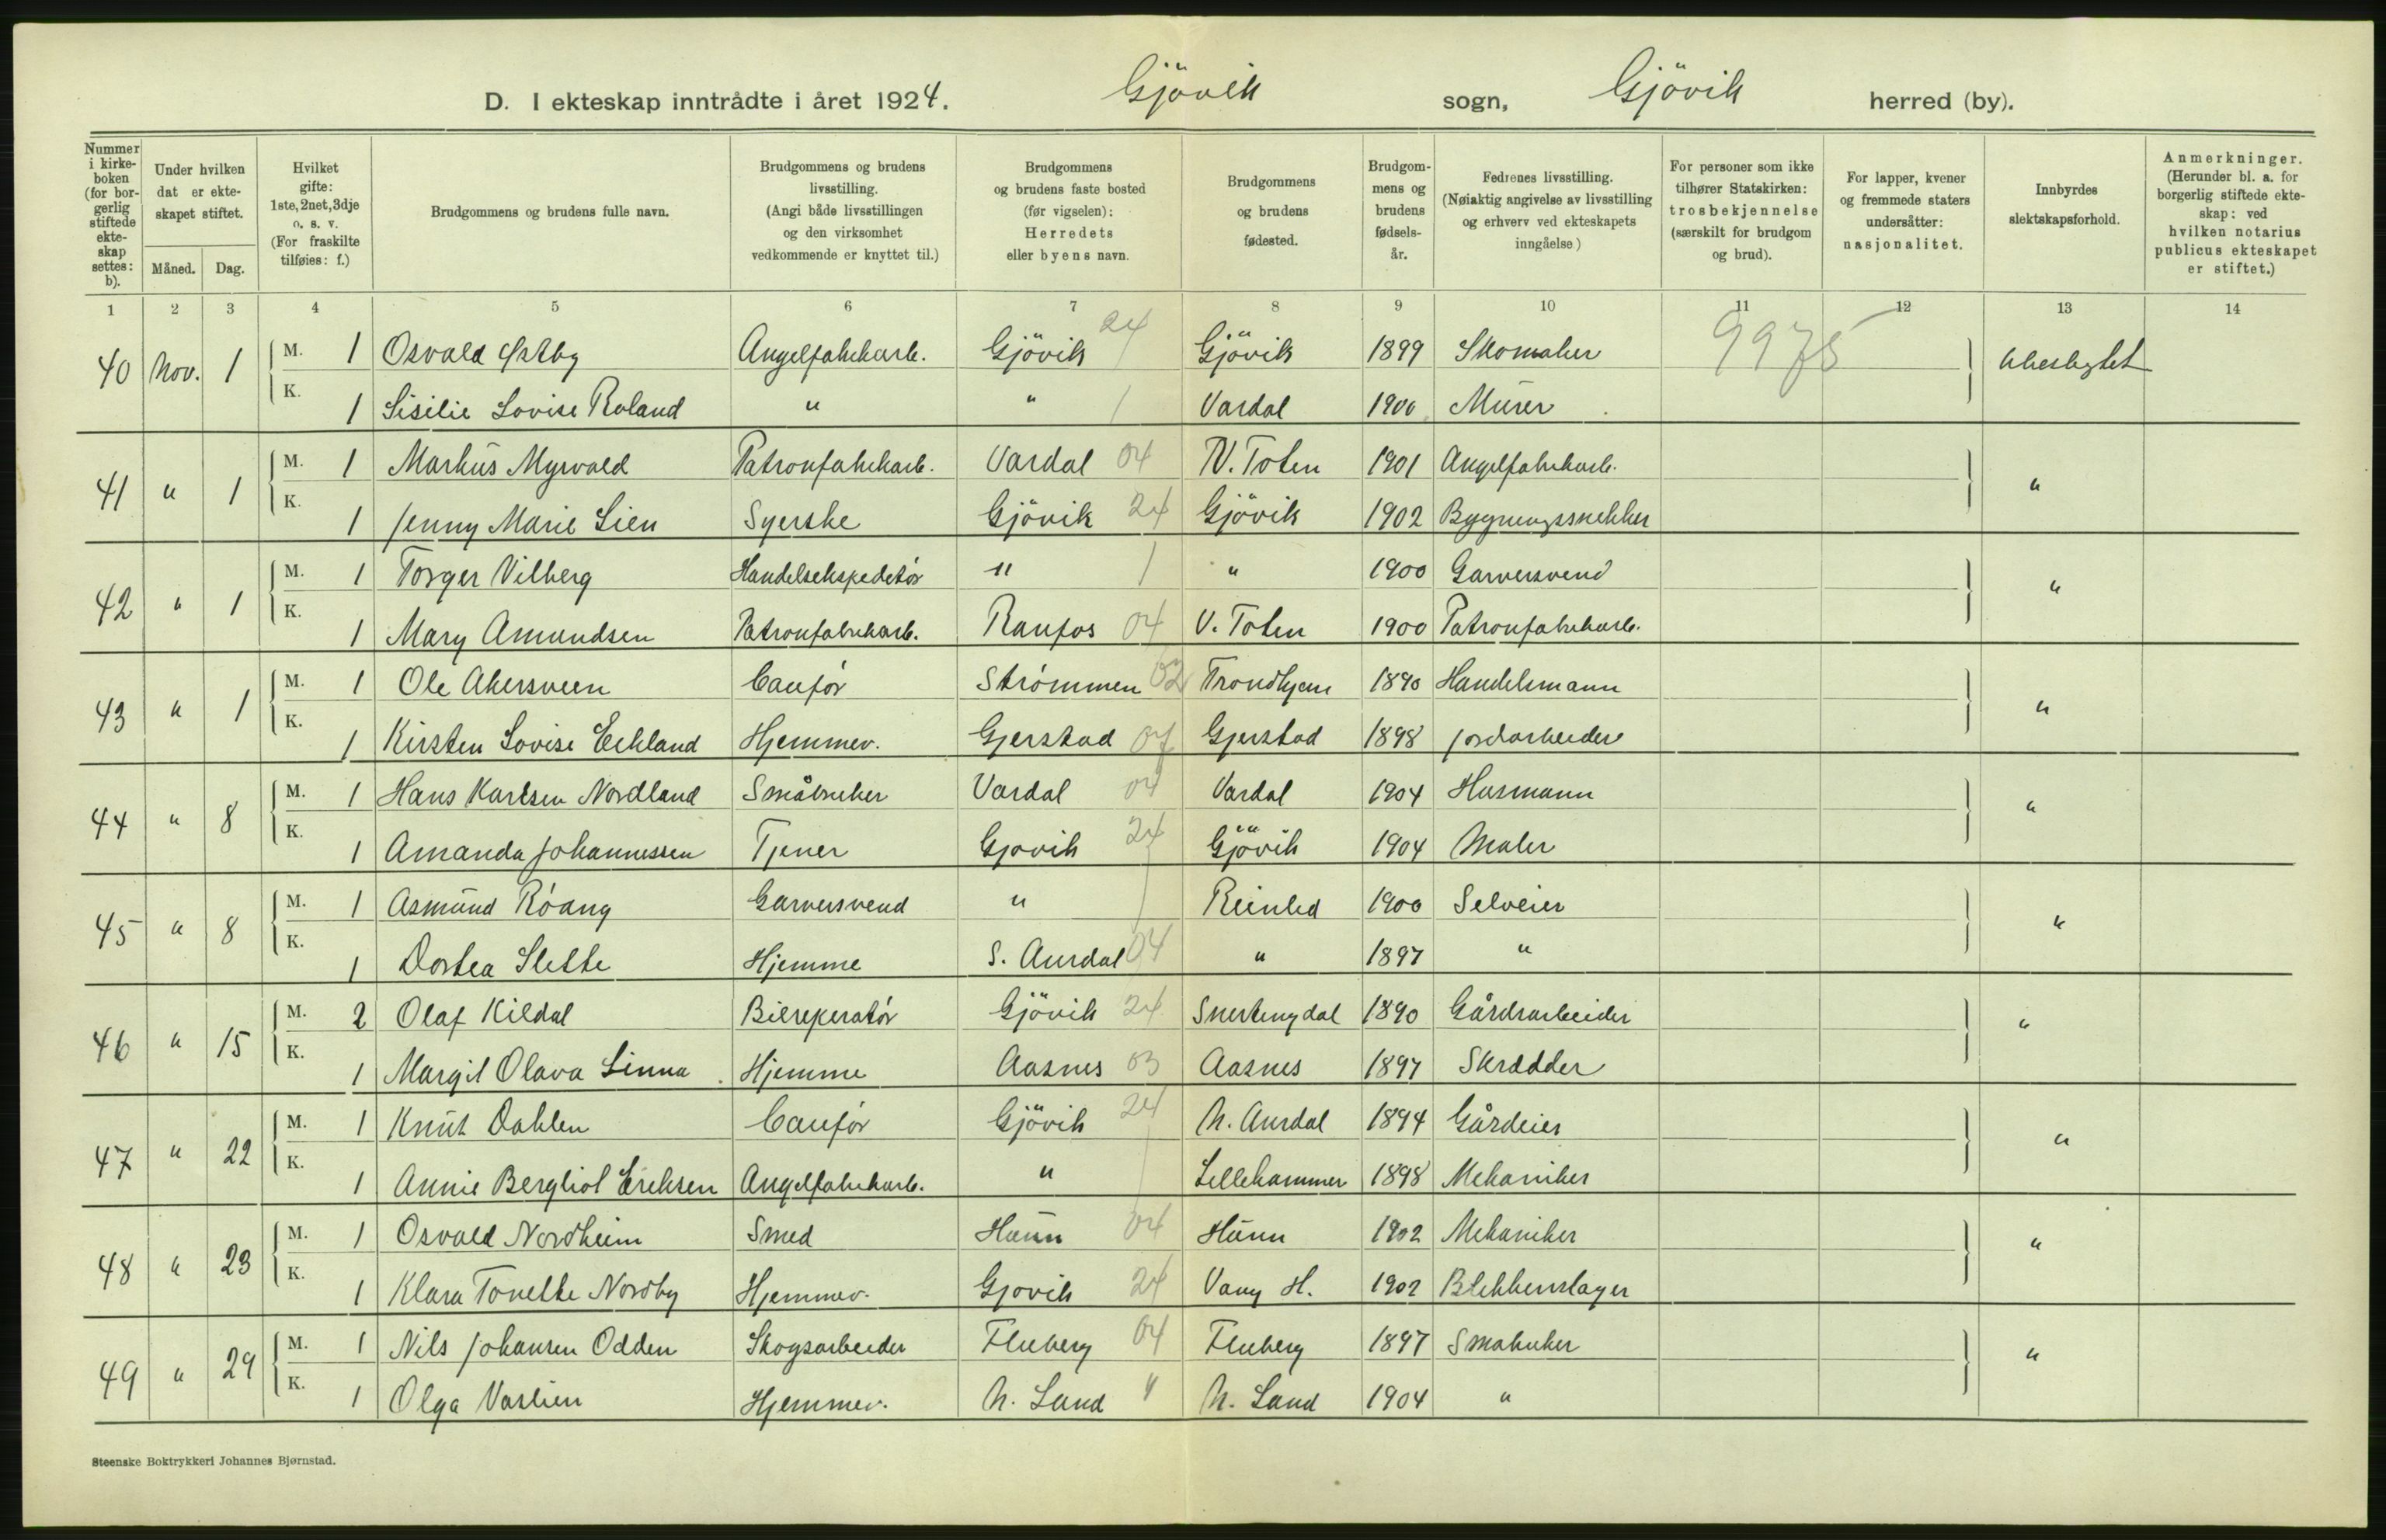 D. I ekteskap inntrådte i året 1924. Gjövik sogn, Gjövik herred (by).
Nummer i kirkeboken (for borgerlig stiftede ekteskap settes: b).
Under hvilken dat er ekteskapet stiftet.
Måned. Dag.
Hvilket gifte: 1ste, 2net, 3dje o. s. v. (For fraskilte tilføies: f.)
Brudgommens og brudens fulle navn.
Brudgommens og brudens livsstilling. (Angi både livsstillingen og den virksomhet vedkommende er knyttet til.)
Brudgommens og brudens faste bosted (før vigselen): Herredets eller byens navn.
Brudgommens og brudens fødested.
Brudgommens og brudens fødselsår.
Fedrenes livsstilling. (Nøiaktig angivelse av livsstilling og erhverv ved ekteskapets inngåelse)
For personer som ikke tilhører Statskirken: trosbekjennelse (særskilt for brudgom og brud).
For lapper, kvener og fremmede staters undersåtter: nasjonalitet.
Innbyrdes slektskapsforhold.
Anmerkninger. (Herunder bl. a. for borgerlig stiftede ekteskap: ved hvilken notarius publicus ekteskapet er stiftet.)
1 2 3 4 5 6 7 8 9 10 11 12 13 14
40 Nov. 1 M. 1 Osvald Østby Angelfabrikarb. Gjövik 24 Gjövik 1899 Skomaker 9975 Ubeslegtet
K. 1 Sisilie Lovise Roland " " Vardal 1900 Murer
41 " 1 M. 1 Markus Myrvold Patronfabrikarb. Vardal 04 V. Toten 1901 Angelfabrikarb. "
K. 1 Jenny Marie Lien Syerske Gjövik 24 Gjövik 1902 Bygningssnekker
42 " 1 M. 1 Torger Vilberg Handelsekspeditør " " 1900 Garversvend "
K. 1 Mary Amundsen Patronfabrikarb. Raufos 04 V. Toten 1900 Patronfabrikarb.
43 " 1 M. 1 Ole Akersveen Caufør Strømmen 02 Trondhjem 1890 Handelsmann "
K. 1 Kirsten Lovise Eikland Hjemmev. Gjerstad 07 Gjerstad 1898 Jordarbeider
44 " 8 M. 1 Hans Karlsen Nordland Småbruker Vardal 04 Vardal 1904 Husmann "
K. 1 Amanda Johannessen Tjener Gjovik 24 Gjövik 1904 Maler
45 " 8 M. 1 Asmund Röang Garversvend " Reinled 1900 Selveier "
K. 1 Dortea Slette Hjemme S. Aurdal 04 " 1897 "
46 " 15 M. 2 Olaf Kildal Bilreperatör Gjövik 24 Snertingdal 1890 Gårdsarbeider "
K. 1 Margit Olava Linna Hjemme Aasnes 03 Aasnes 1897 Skrædder
47 " 22 M. 1 Knut Dahlen Caufør Gjövik 24 N. Aurdal 1894 Gårdeier "
K. 1 Annie Bergliot Eriksen Angelfabrikarb. " Lillehammer 1898 Mekaniker
48 " 23 M. 1 Osvald Nordheim Smed Hunn 04 Hunn 1902 Mekaniker "
K. 1 Klara Tonette Nordby Hjemmev. Gjovik 24 Vang H. 1902 Blikkenslager
49 " 29 M. 1 Nils Johansen Odden Skogsarbeider Fluberg 04 Fluberg 1897 Småbruker "
K. 1 Olga Vaslien Hjemmev. N. Land " N. Land 1904 "
Steenske Boktrykkeri Johannes Bjørnstad.